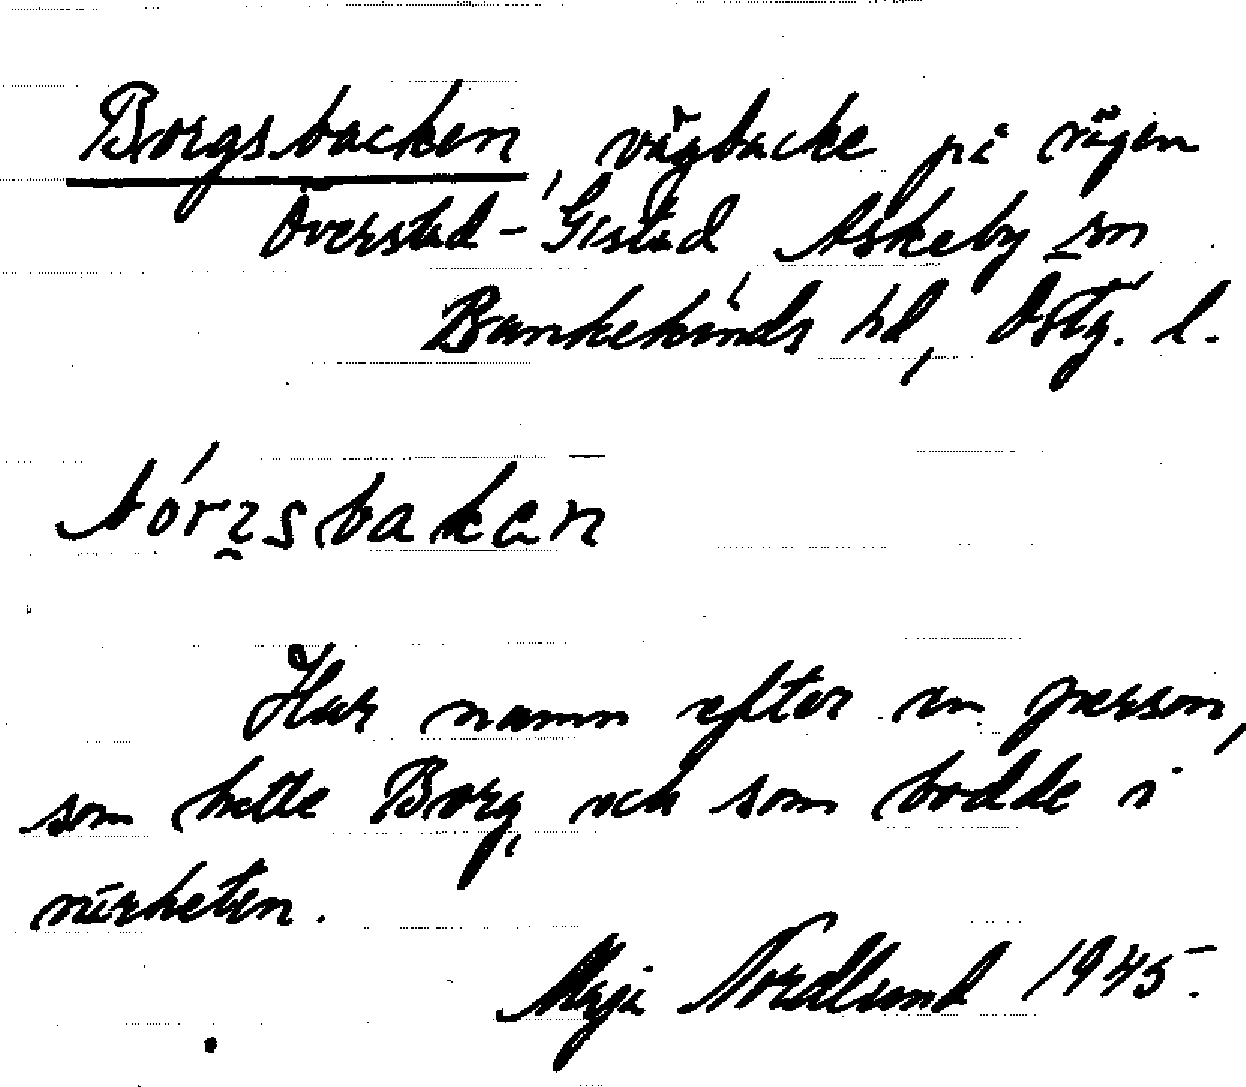 Borgsbacken, vägbacke på vägen
Överstad - Gistad Askeby sn
Bankekinds hd, Östg. l.
bórɿ̯sbakan
Har namn efter en person,
som hette Borg, och som bodde i
närheten.
Maja Nordlund 1945.